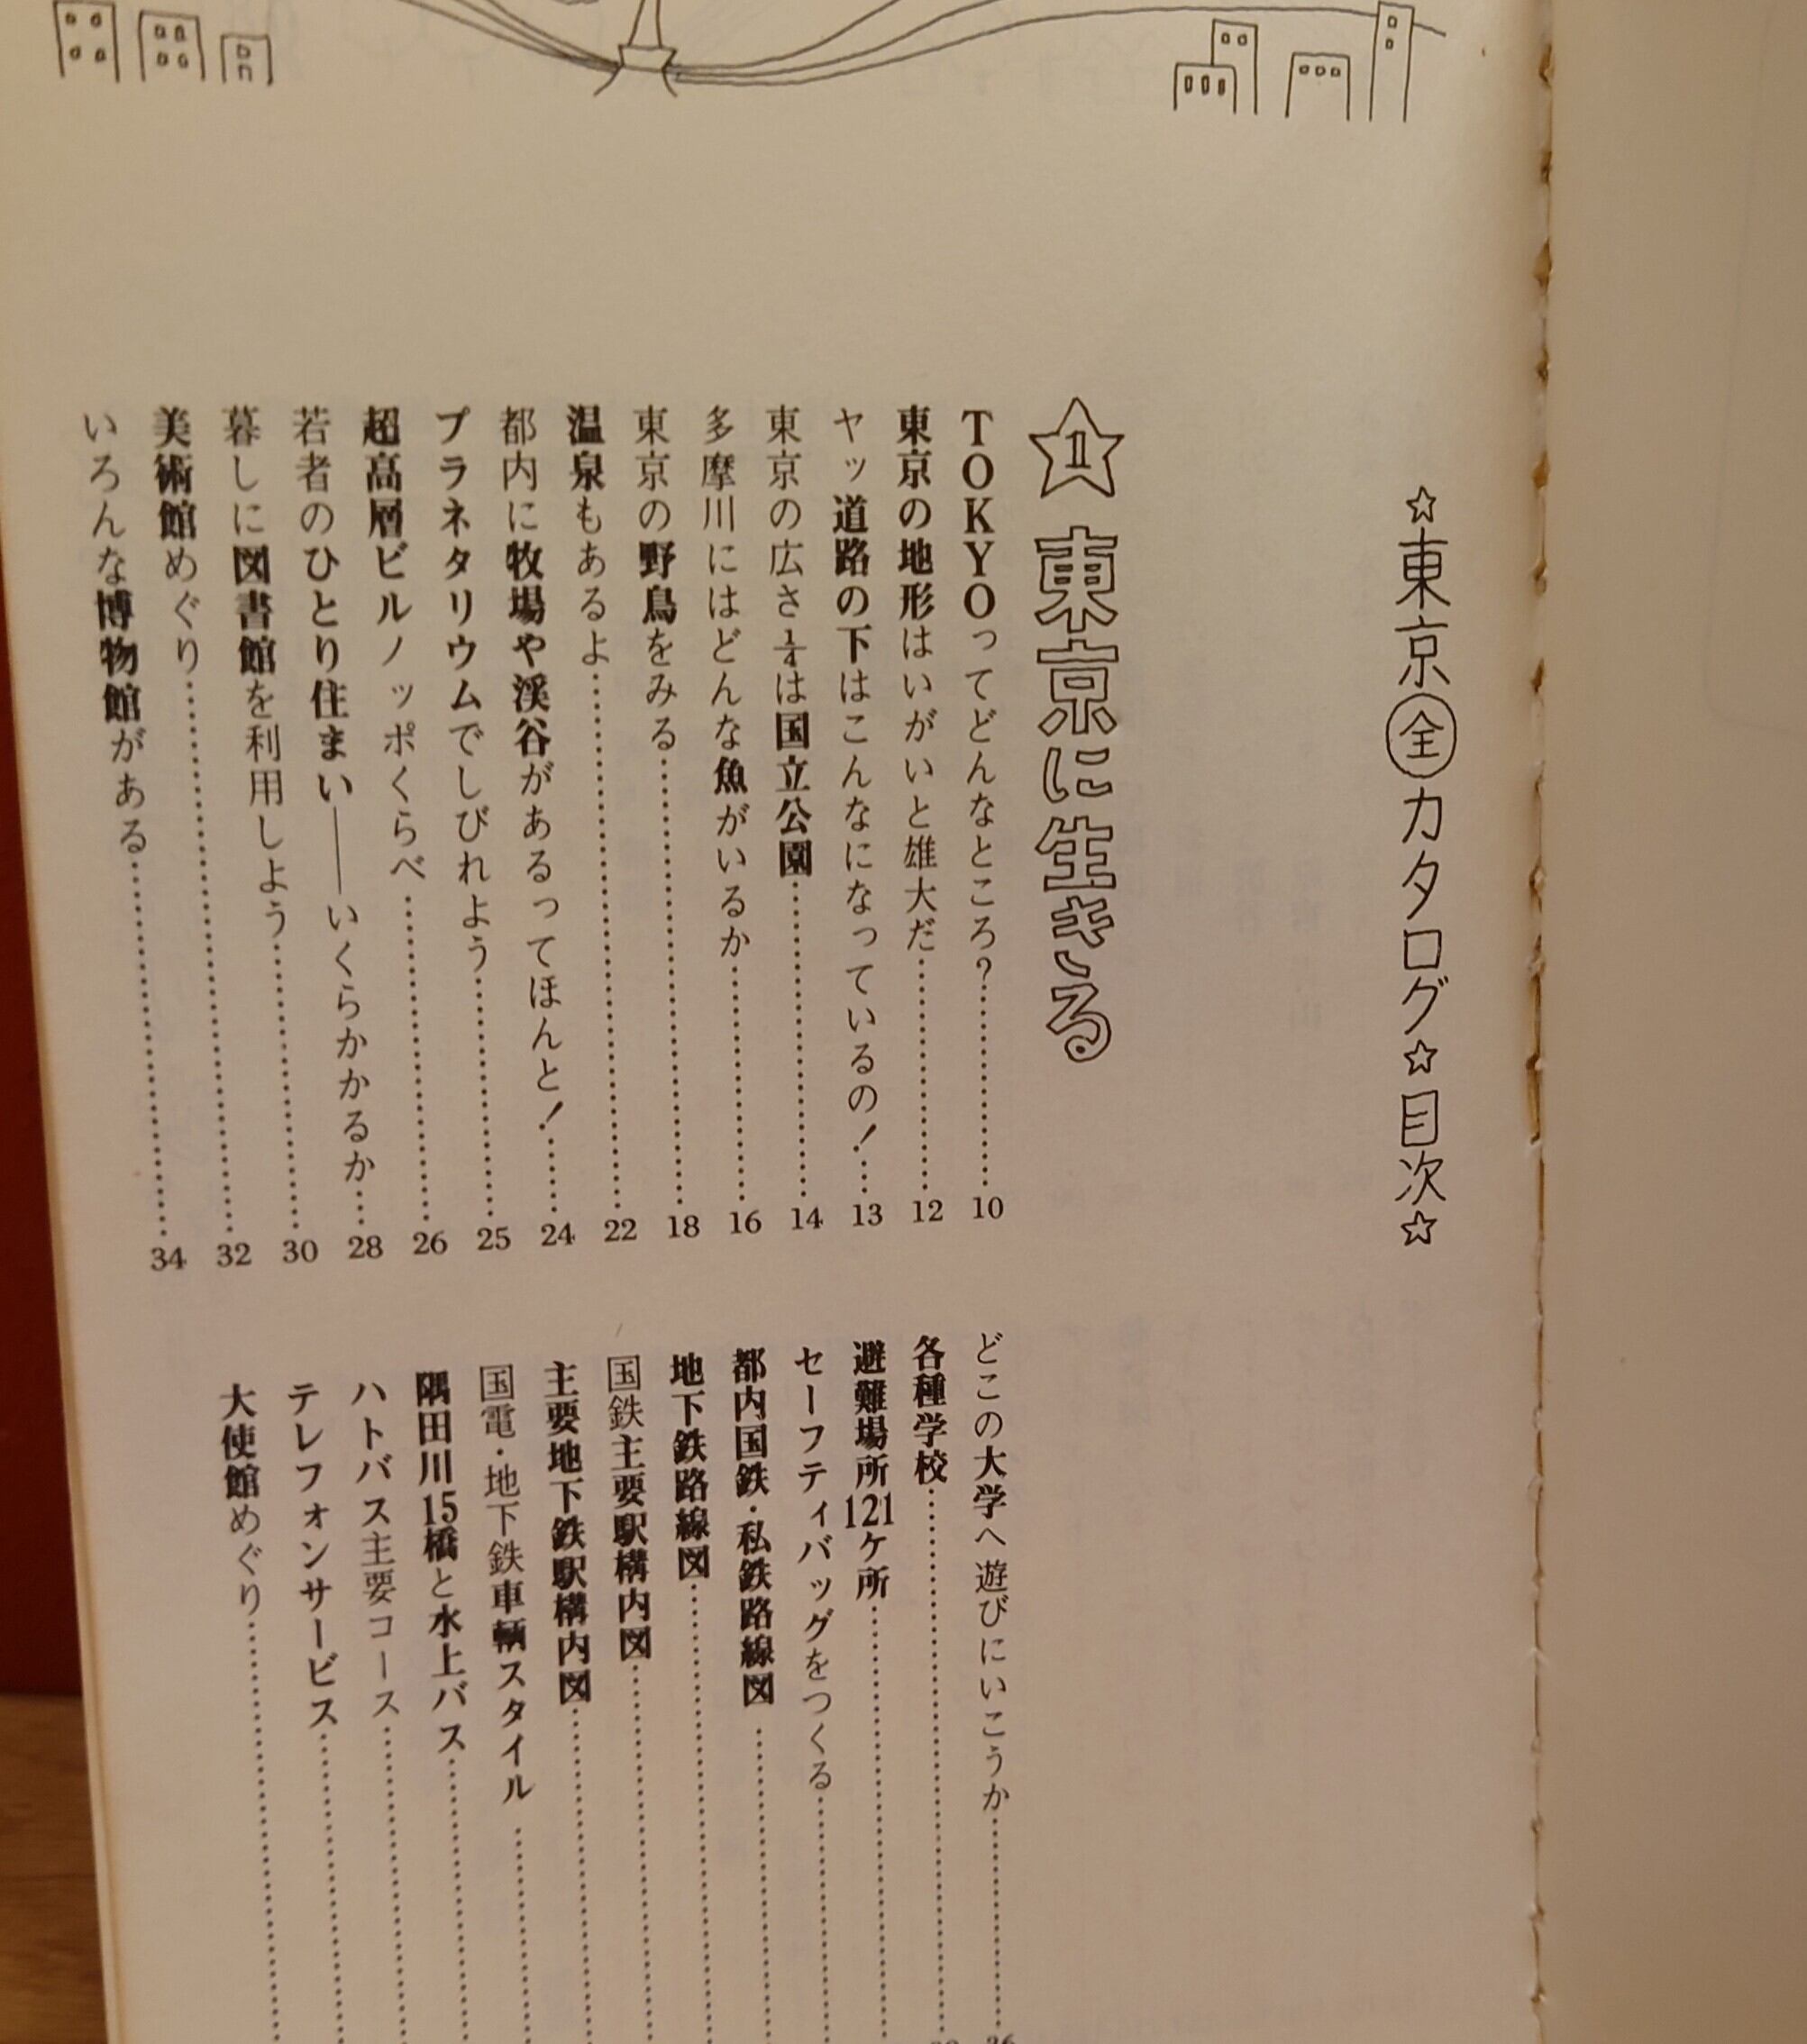 ☆東京全カタログ☆目次☆
1 東京に生きる
TOKYOってどんなところ?……………10
東京の地形はいがいと雄大だ……………12
ヤッ道路の下はこんなになっているの!……13
東京の広さ¼は国立公園……………14
多摩川にはどんな魚がいるか……………16
東京の野鳥をみる……………18
温泉もあるよ……………22
都内に牧場や渓谷があるってほんと!……24
プラネタリウムでしびれよう……………25
超高層ビルノッポくらべ……………26
若者のひとり住まい――いくらかかるか……28
暮しに図書館を利用しよう……………30
美術館めぐり……………32
いろんな博物館がある……………34
どこの大学へ遊びにいこうか……………
各種学校……………
避難場所121ケ所……………
セーフティバッグをつくる……………
都内国鉄・私鉄路線図……………
地下鉄路線図……………
国鉄主要駅構内図……………
主要地下鉄駅構内図……………
国電・地下鉄車輌スタイル……………
隅田川15橋と水上バス……………
ハトバス主要コース……………
テレフォンサービス……………
大使館めぐり……………